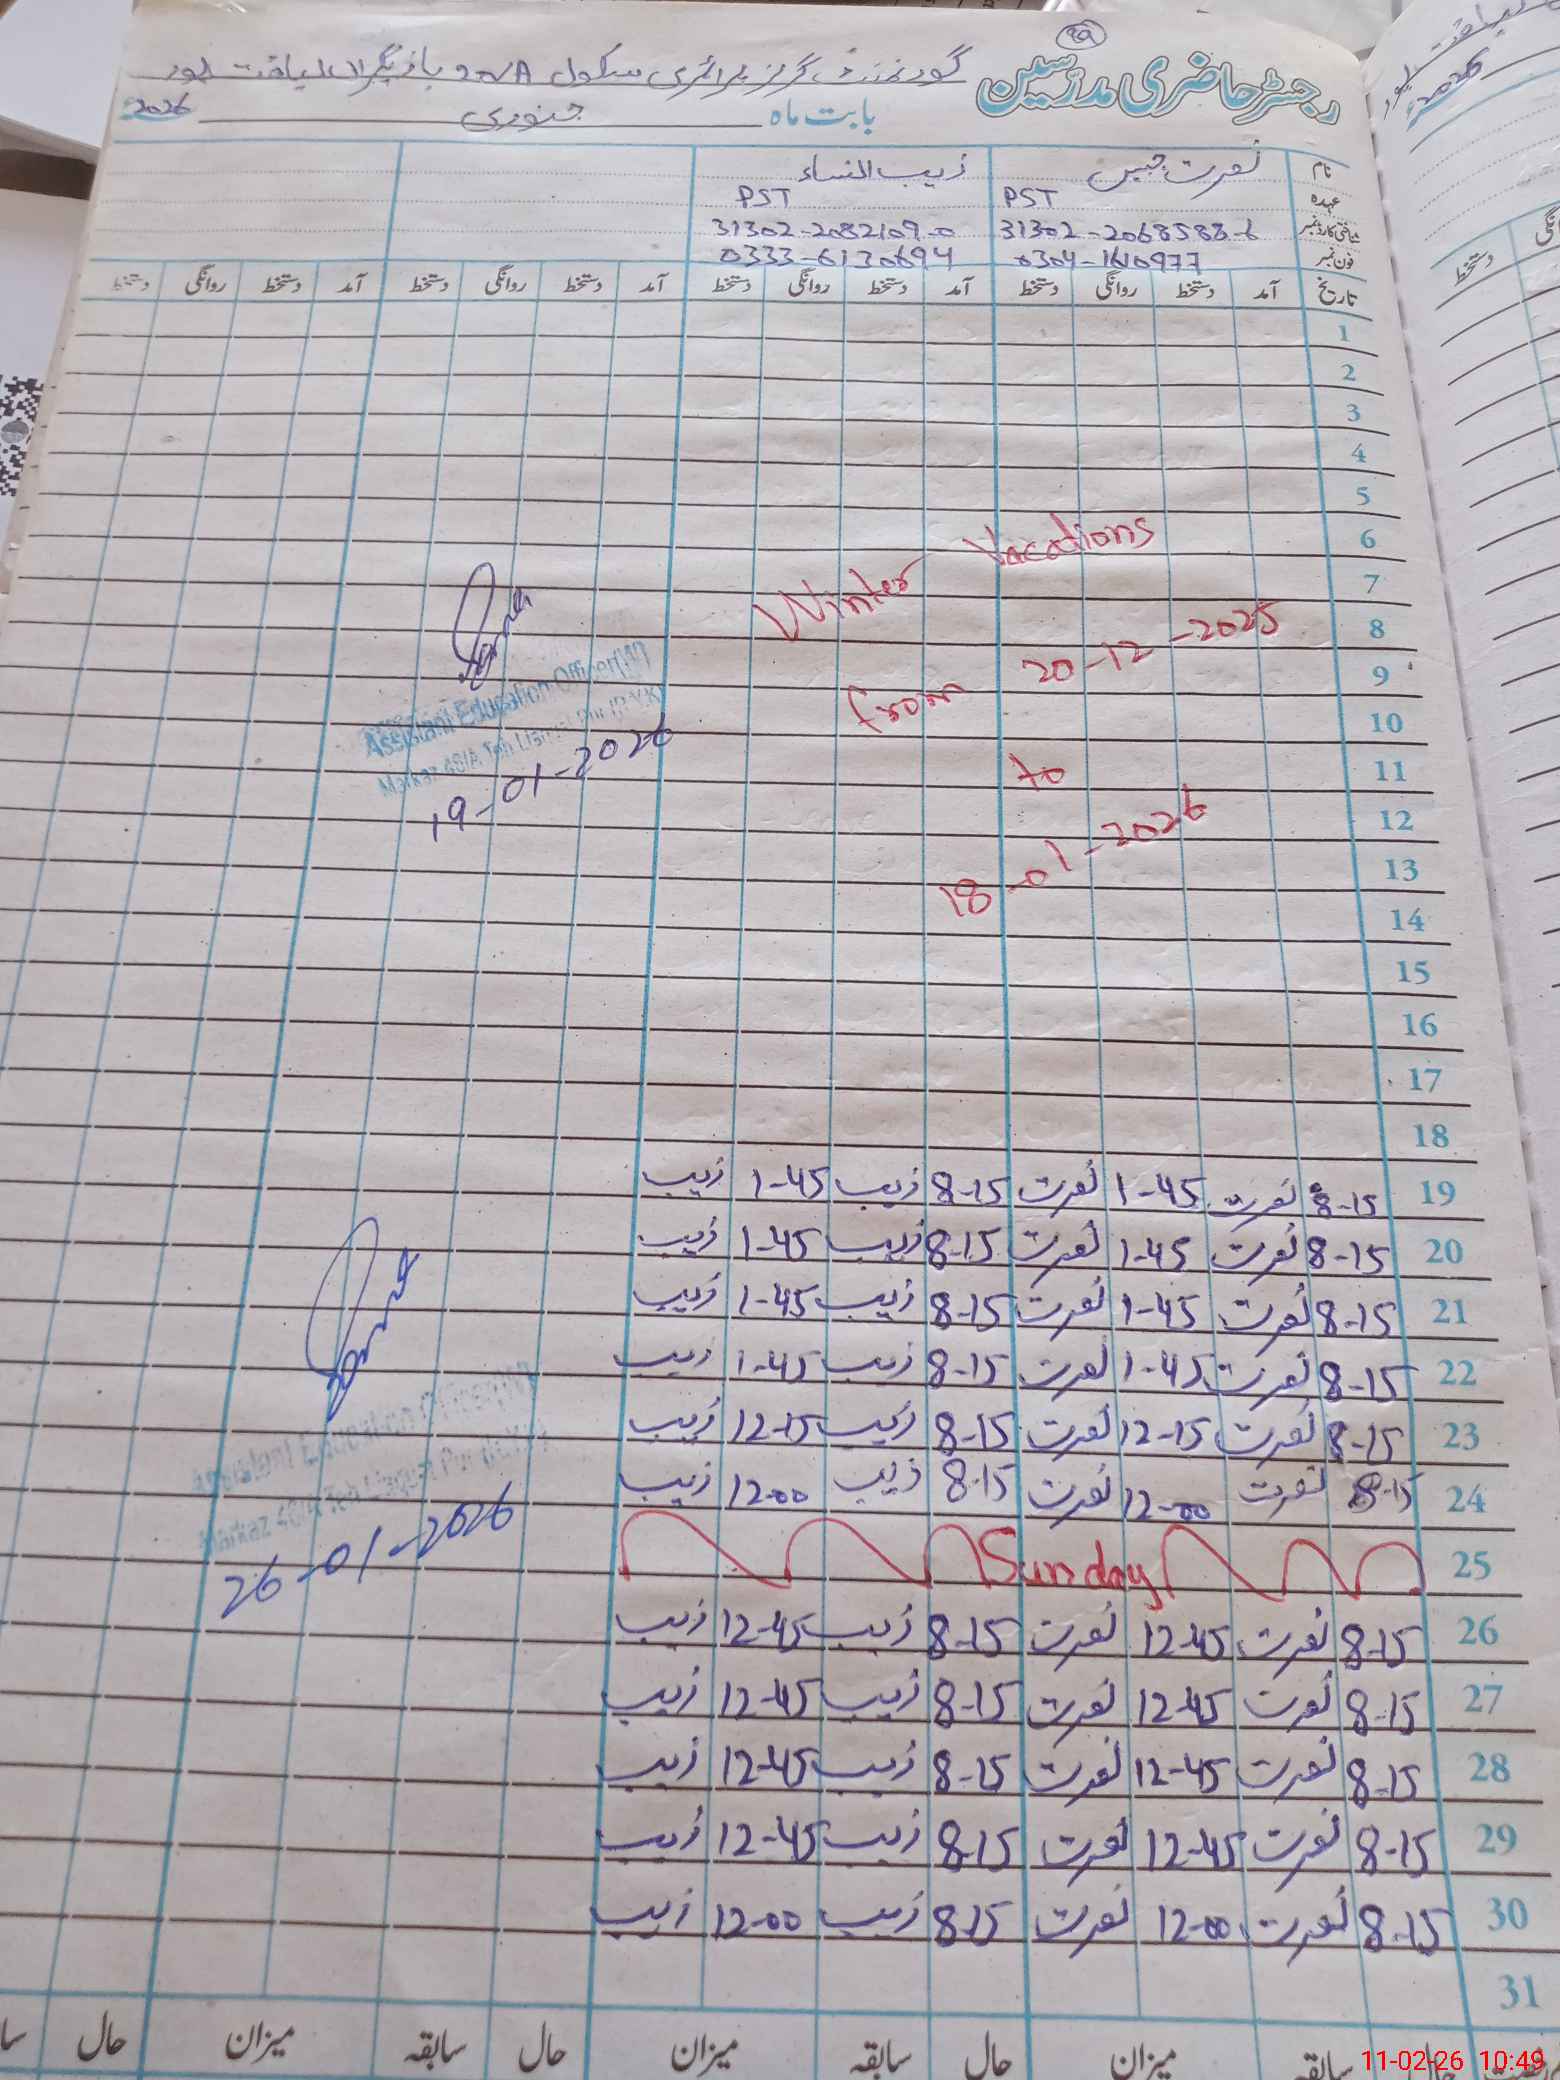 49
رجسٹر حاضری مدرسین
گورنمنٹ گرلز پرائمری سکول 20/A بازیگراں لیاقت پور
بابت ماہ جنوری 2026
نام نصرت جبیں زیب النساء
عہدہ PST PST
شناختی کارڈ نمبر 31302-2068588-6 31302-2082109-0
فون نمبر 0304-1610977 0333-6130694
تاریخ آمد دستخط روانگی دستخط آمد دستخط روانگی دستخط آمد دستخط روانگی دستخط آمد دستخط روانگی دستخط
1
2
3
4
5
6
Winter Vacations
7
8
from 20-12-2025
9
10
to
11
12
18-01-2026
13
14
15
16
17
18
Assistant Education Officer(W)
Markaz 48/A Teh Liaqat Pur (R.Y.K)
19-01-2026
19 8-15 نصرت 1-45 نصرت 8-15 زیب 1-45 زیب
20 8-15 نصرت 1-45 نصرت 8-15 زیب 1-45 زیب
21 8-15 نصرت 1-45 نصرت 8-15 زیب 1-45 زیب
22 8-15 نصرت 1-45 نصرت 8-15 زیب 1-45 زیب
23 8-15 نصرت 12-15 نصرت 8-15 زیب 12-15 زیب
24 8-15 نصرت 12-00 نصرت 8-15 زیب 12-00 زیب
25 Sunday
26 8-15 نصرت 12-45 نصرت 8-15 زیب 12-45 زیب
27 8-15 نصرت 12-45 نصرت 8-15 زیب 12-45 زیب
28 8-15 نصرت 12-45 نصرت 8-15 زیب 12-45 زیب
29 8-15 نصرت 12-45 نصرت 8-15 زیب 12-45 زیب
30 8-15 نصرت 12-00 نصرت 8-15 زیب 12-00 زیب
31
Assistant Education Officer(W)
Markaz 48/A Teh Liaqat Pur (R.Y.K)
26-01-2026
حال سابقہ میزان حال سابقہ میزان حال سابقہ میزان حال
2026
دستخط
11-02-26 10:49